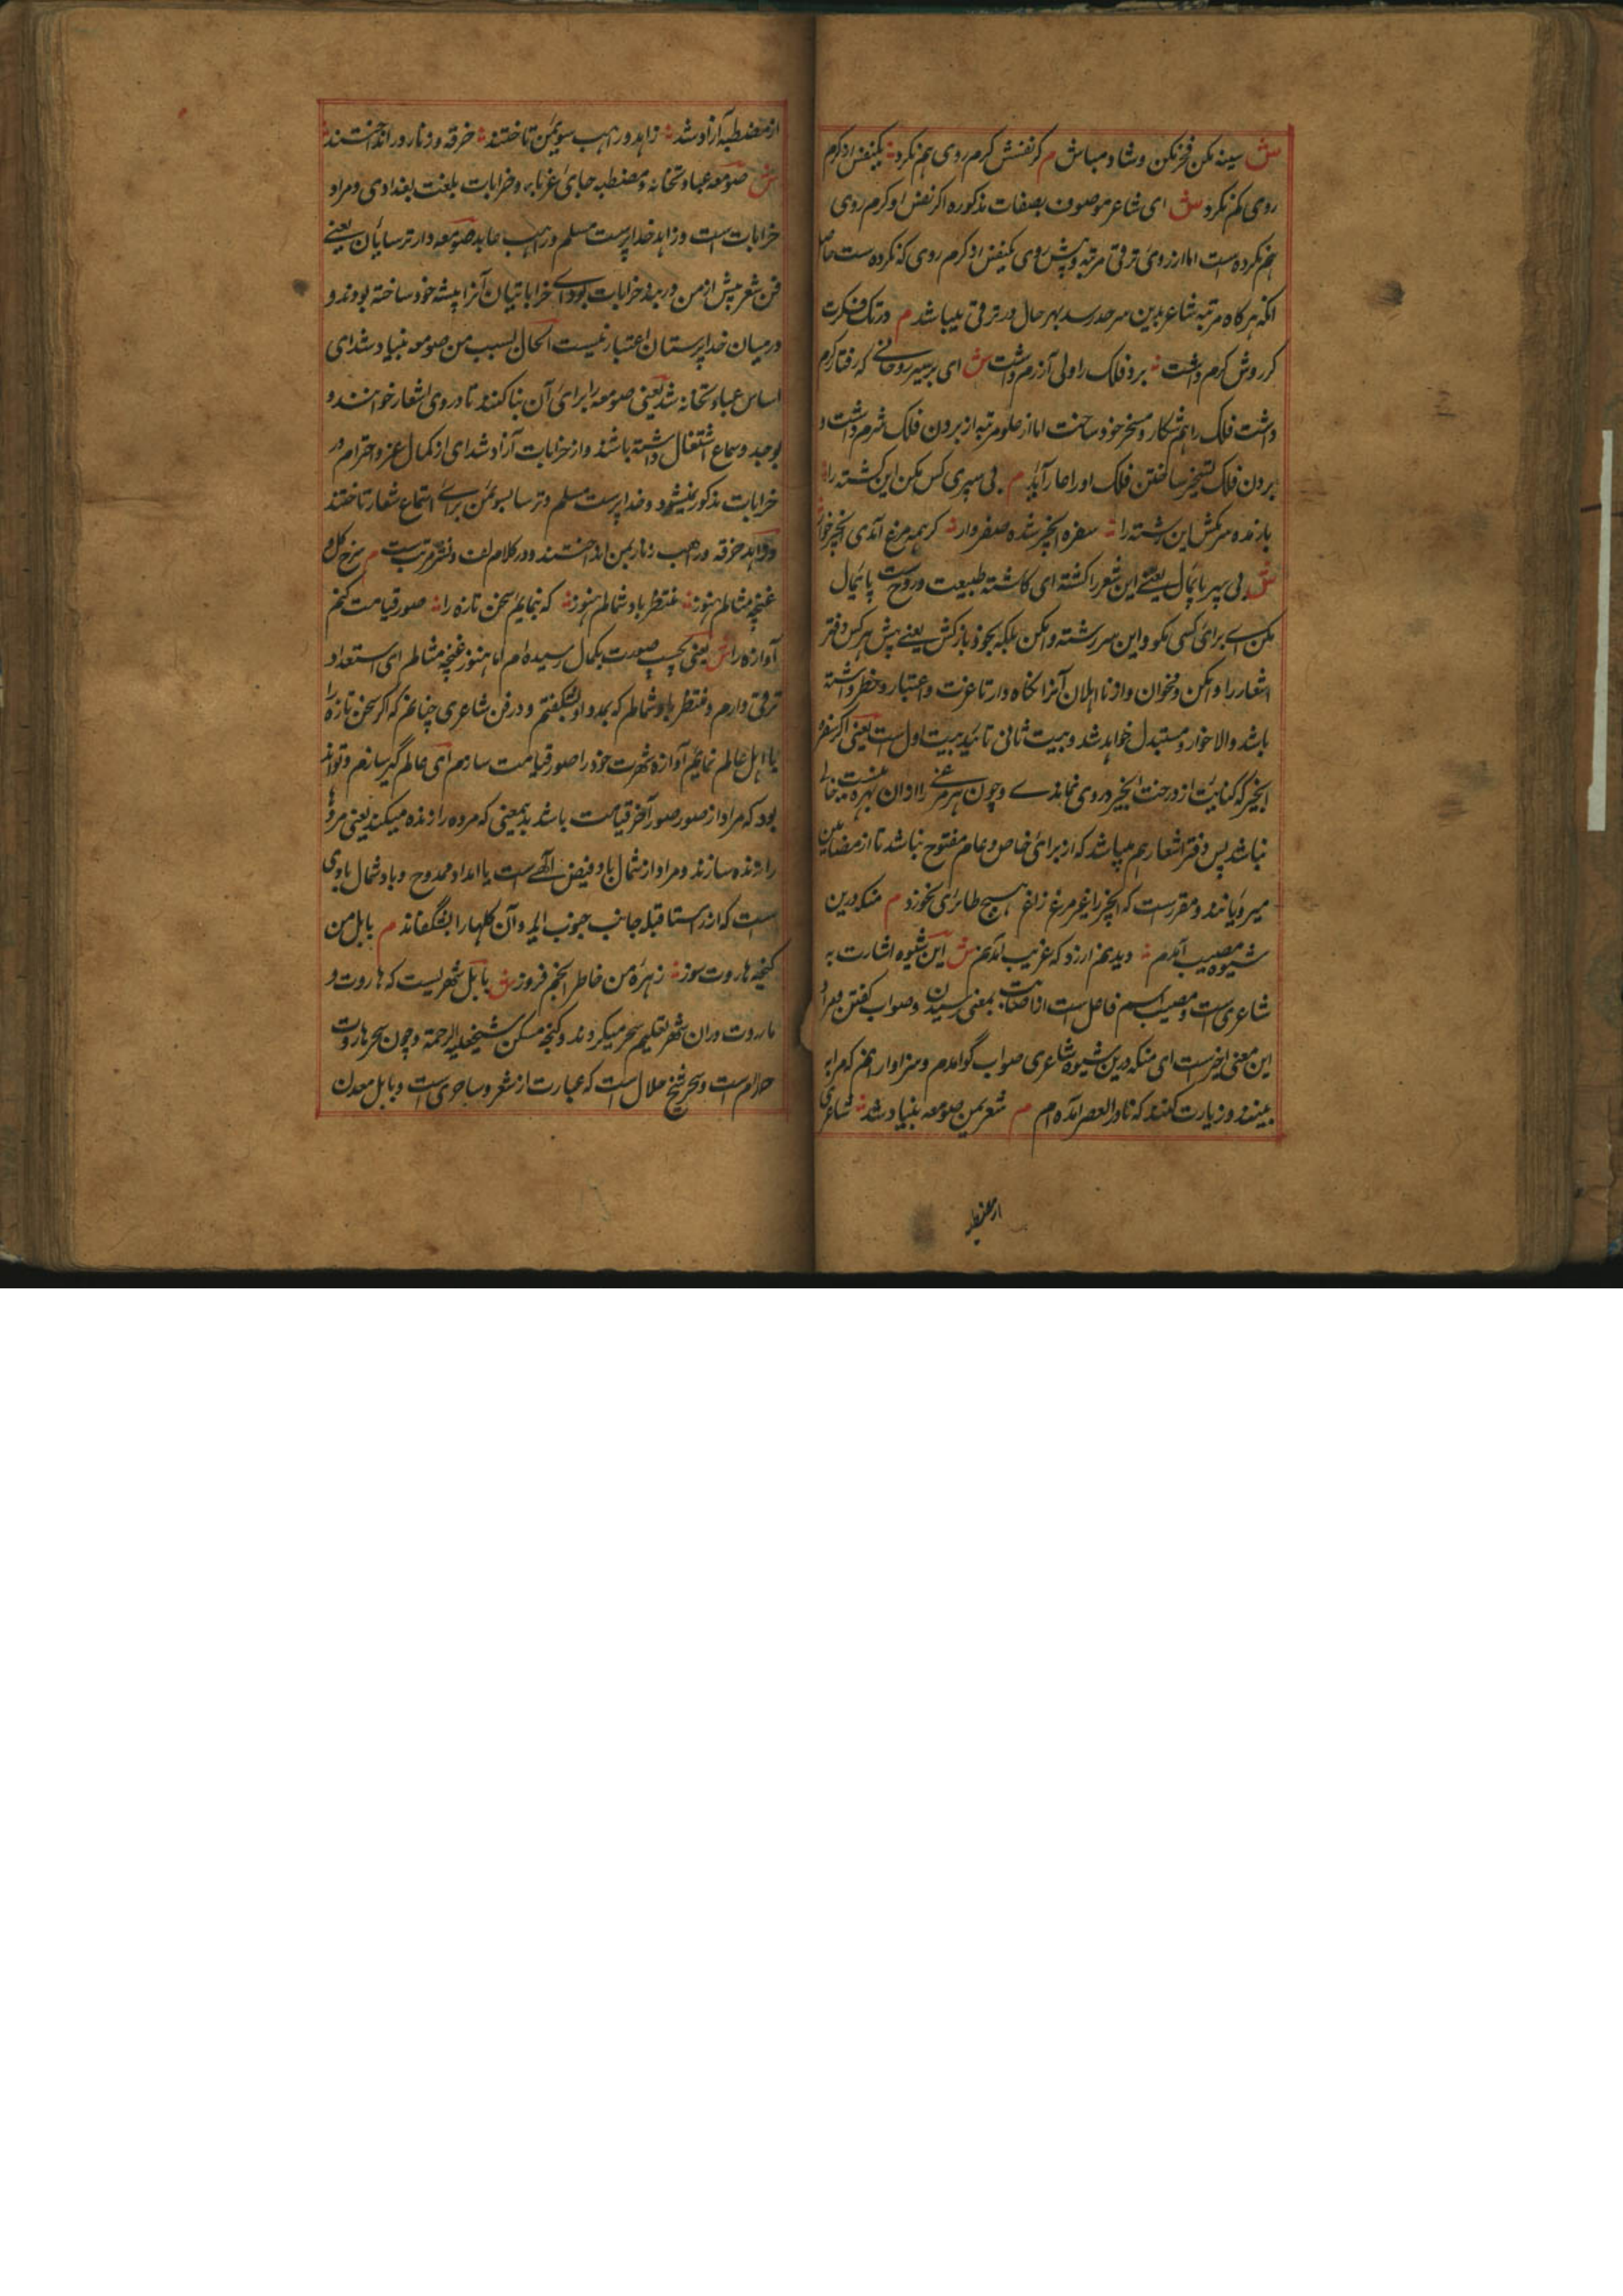 ش سینه مکن فخر مکن و شاد مباش م کر نفسش کرم روی هم نکرد یکنفس او کرم
روی کم نکرد ش ای شاعر موصوف بصفات مذکوره اکر نفس او کرم روی
هم نکرده است اما از روی ترقی مرتبه و پیش روی یکنفس او کرم روی که نکرده است
انکه هر کاه مرتبه شاعر بدین سرحد رسد بهر حال در ترقی میباشد م در تک فکرت
کر روش کرم داشت برد فلک را ولی آزرم داشت ش ای بر سپهر روحانی که رفتار کرم
داشت فلک را هم شکار و مسخر خود ساخت اما از علو مرتبه از بردن فلک شرم داشت و
بردن فلک تسخیر ساختن فلک او را عار آید م بی سپری کس مکن این کشته را
باز مده سر بکس این رشته را سفره انجیر شده صفر وار کر همه مرغ آمدی انجیر خوار
ش بی سپر پایمال یعنی این شعر را کشته ای کاشته طبیعت و روح است پایمال
مکن ای برای کسی مکو و این سر رشته وا مکن بلکه بخود باز کش یعنی پیش هر کس دفتر
اشعار را وا مکن و مخوان و از نا اهلان آنرا نکاه دار تا عزت و اعتبار و خطر داشته
باشد والا خوار و مستبدل خواهد شد و بیت ثانی تائید بیت اول است یعنی اکر سفره
انجیر که کنایت از درخت انجیر در وی نماندی و چون هر مرغی را از آن بهره نیست خالی
نباشد پس دفتر اشعار هم میباشد که از برای خاص و عام مفتوح نباشد تا از مضامین
میروپانند و مقرر است که انجیر را غیر مرغ زاغ هیچ طائری نخورد م منکه درین
شیوه مصیب آمدم دیدنم ارزد که غریب آمدم ش این شیوه اشارت به
شاعری است و مصیب اسم فاعل است از اصابت بمعنی رسیدن و صواب کفتن و مراد
این معنی اخیر است ای منکه درین شیوه شاعری صواب کو آمدم و سزاوار انم که مرا
ببینند و زیارت کنند که نادر العصر آمده ام م شعر بمن صومعه بنیاد شد شاعری
از مصطبه
از مصطبه آزاد شد زاهد و راهب سوی من تاختند خرقه و زنار در انداختند
ش صومعه عبادتخانه و مصطبه جای غربا و خرابات بلغت بغدادی و مراد
خرابات است و زاهد خدا پرست مسلم و راهب عابد صومعه دار ترسایان یعنی
فن شعر پیش از من در بند خرابات بود ای خراباتیان آنرا پیشه خود ساخته بودند و
در میان خدا پرستان اعتبار نیست الحال بسبب من صومعه بنیاد شد ای
اساس عبادتخانه شد یعنی صومعه را برای آن بنا کنند تا در وی اشعار خوانند و
بوجد و سماع اشتغال داشته باشند و از خرابات آزاد شد ای از کمال عز و احترام در
خرابات مذکور نمیشود و خدا پرست مسلم و ترسا بسوی من برای استماع شعار تاختند
و زاهد خرقه و راهب زنار بمن انداختند و در کلام لف و نشر مرتب است م سرخ کل و
غنچه مثالم هنوز منتظر باد شمالم هنوز که نمایم سخن تازه را صور قیامت کنم
آوازه را ش یعنی بحسب صورت بکمال رسیده ام اما هنوز غنچه مثالم ای استعداد
ترقی دارم و منتظر باد شمالم که بمدد او بشکفتم و در فن شاعری چنانم که اکر سخن تازه را
با اهل عالم نمایم آوازه شهرت خود را صور قیامت سازم ای عالم گیر سازم و تواند
بود که مراد از صور صور آخر قیامت باشد بدینمعنی که مرده را زنده میکند یعنی مرده
را زنده سازند و مراد از شمال باد فیض الهی است یا امداد ممدوح و باد شمال بادی
است که از راستا قبله جانب جنوب آید و آن کلها را بشکفاند م بابل من
کنجه هاروت سوز زهره من خاطر انجم فروز ش بابل شهریست که هاروت و
ماروت در ان شهر تعلیم سحر میکردند و کنجه مسکن شیخ علیه الرحمة و چون سحر هاروت
حرام است و سحر شیخ حلال است که عبارت از شعر و ساحری است و بابل معدن